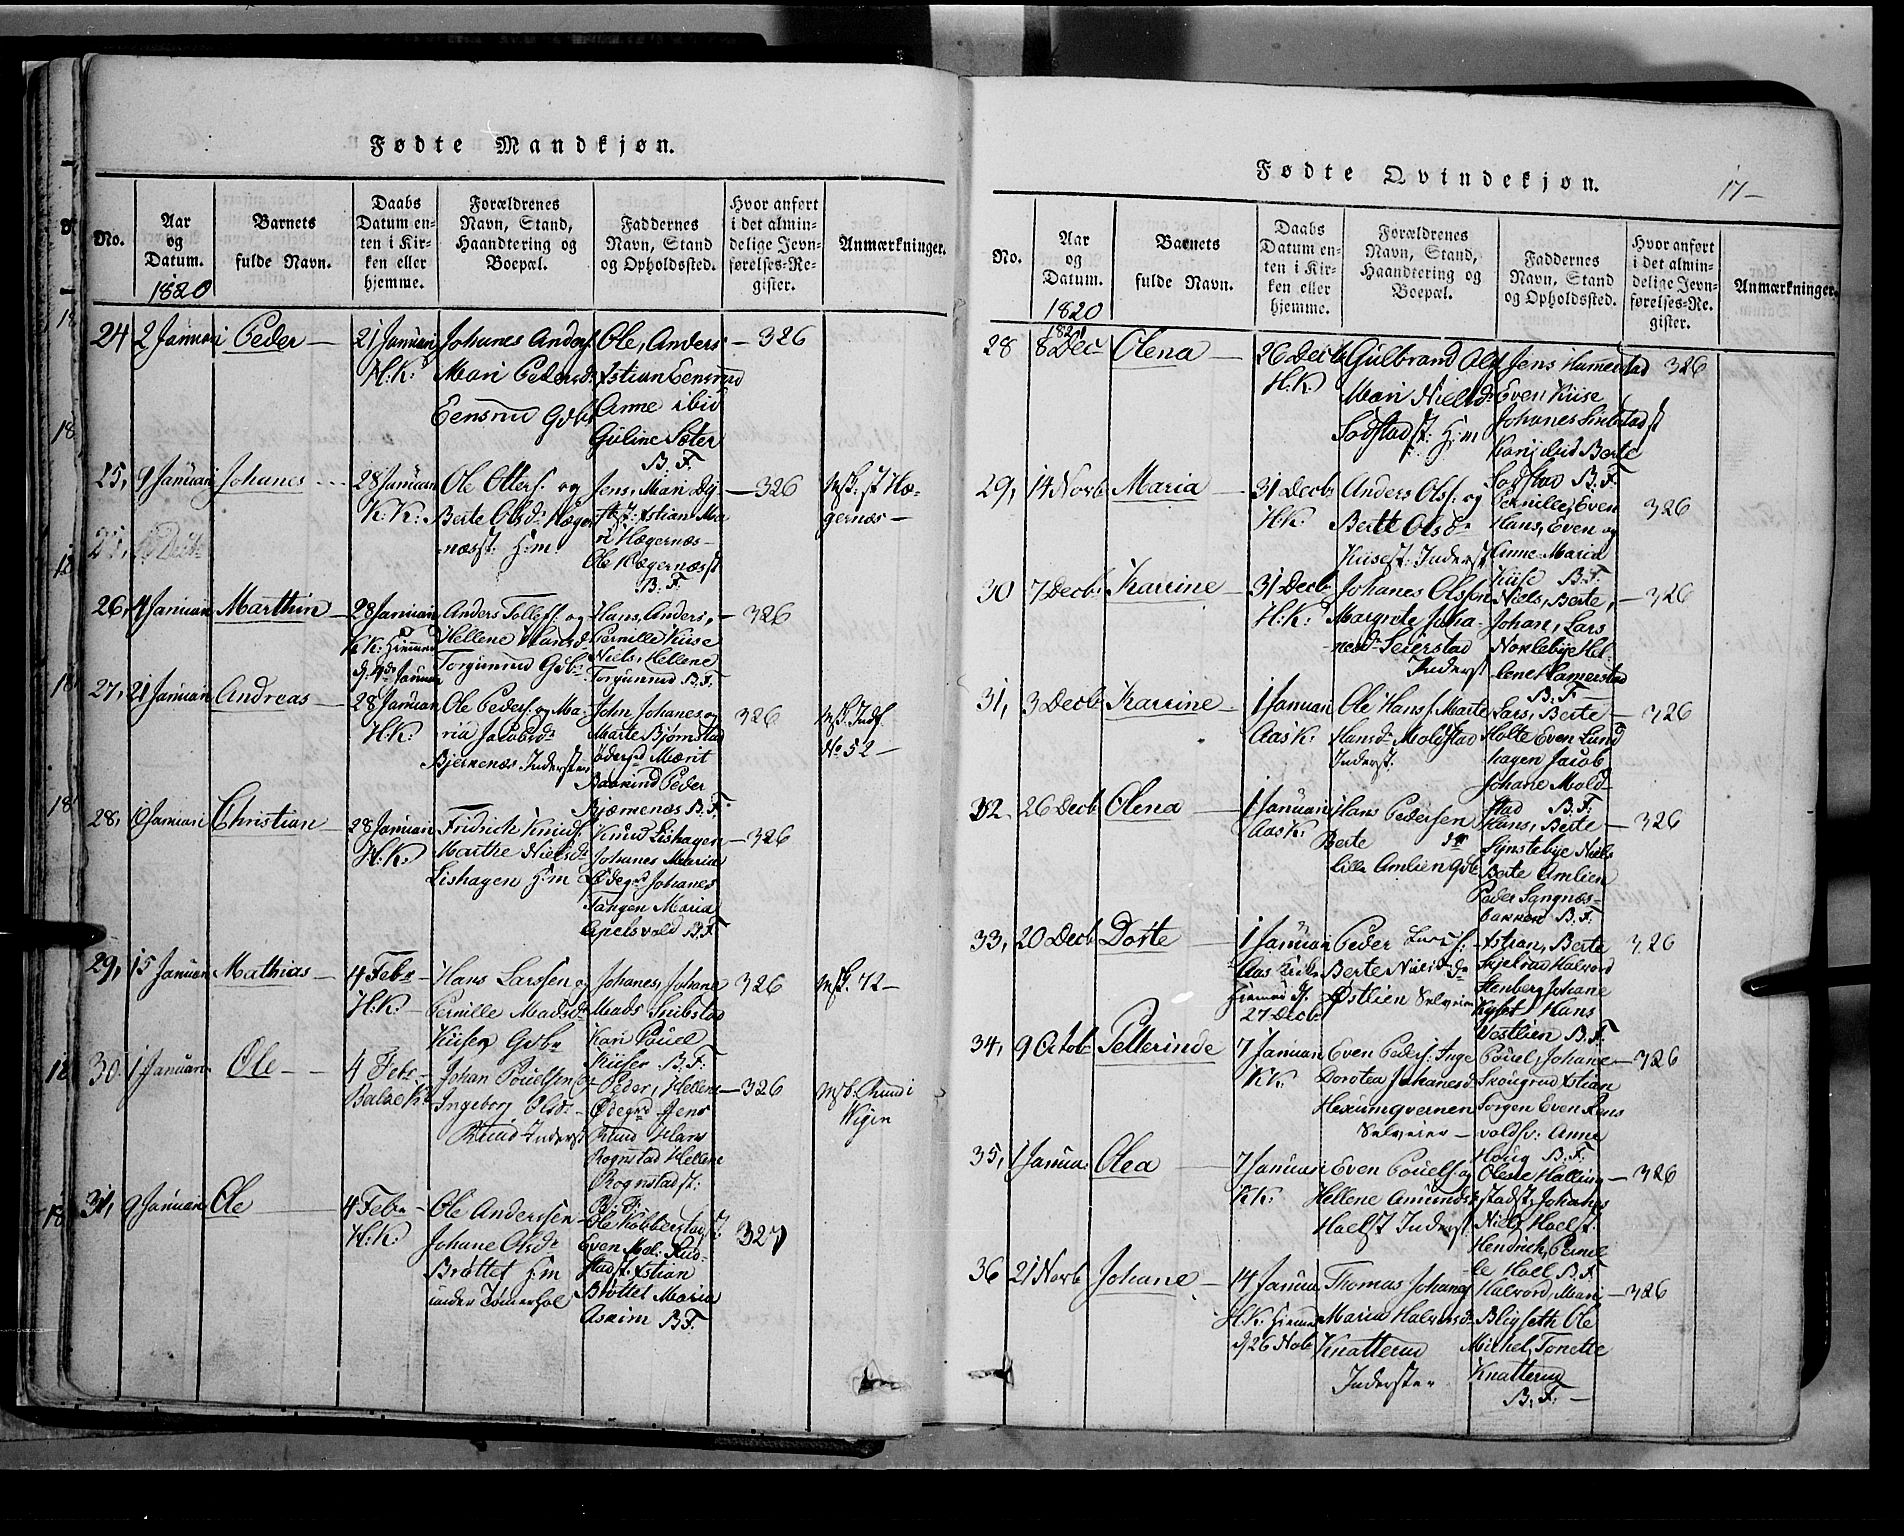 Fødte Mandkjøn.
No.
Aar
og
Datum.
1820
Barnets
fulde Navn.
Daabs
Datum en-
ten i Kir-
ken eller
hjemme.
Forældrenes
Navn, Stand,
Haandtering og
Boepæl.
Faddernes
Navn, Stand
og Opholdssted.
Hvor anført
i det almin-
delige Jevn-
førelses-Re-
gister.
Anmærkninger.
24 2 Januari Peder
21 Januari
H.K:
Johanes Anders:
Mari Pedersd:
Eensrud Gdbr
Ole, Anders
Estian Eensrud
Anne ibid
Guline Sæter
B. F.
326
25, 9 Januari Johanes
28 Januari
K K:
Ole Ollers: og
Berte Olsd: Hæger
næsst: H:m
Jens, Mari
st: Estian Ma
ri Hægernæs
Ole Hægernæsst
B. F.
326
st Hæ-
gernæs
26, 4 Januari Marthin
28 Januari
K K: Hiemmed
d: 4de Januar
Anders Tollefs: og
Hellene Hansd:
Torgunrud Gdbr
Hans, Anders,
Pernille Kiise
Niels, Hellene
Torgunrud B. F.
326
27, 21 Januari Andreas
28 Januari
H.K:
Ole Peders: og Ma-
ria Jacobsd:
Bjernenæs Inderster
John Johanes og
Marte Bjørnstad
Mærit
Peder
Bjærnenæs B. F.
326
No 52
28, 6 Januari Christian
28 Januari
H.K:
Fridrich Knuds:
Marthe Nielsd:
Lishagen H:m
Knud Lishagen
Johanes Maria
Ødegrd Johanes
Tangen Maria
Apelsvold B. F.
326
29, 15 Januari Mathias
4 Febr
H.K:
Hans Larssen og
Pernille Madsd:
Kiiser Gdbr
Johanes, Johane
Mads Snibstad
Kari Pouel
Kiiser B. F.
326
42
30 1 Januari Ole
4 Febr
Balke K:
Johan Pouelsen og
Ingeborg Olsd:
Rund Inderst
Peder, Hellene
Ødegrd Jens
Rund Hans
Rognstad Hellene
Rognstad st:
B. F:
326
Rund i
Wigen
31, 9 Januari Ole
4 Febr
H.K:
Ole Anderssen
Johane Olsd:
Brøttet H:m
under Tømerhol
Ole Kobberstad st:
Even
stad st: Estian
Brøttet Maria
Askim B F.
327
Fødte Qvindekjøn.
17
No.
Aar
og
Datum.
1820
Barnets
fulde Navn.
Daabs
Datum en-
ten i Kir-
ken eller
hjemme.
Forældrenes
Navn, Stand,
Haandtering og
Boepæl.
Faddernes
Navn, Stand
og Opholdssted.
Hvor anført
i det almin-
delige Jevn-
førelses-Re-
gister.
Anmærkninger.
28 8 Dec Olena
26 Decb
H.K:
Gulbrand Ols
Mari Nielsd:
Sodstad st: H:m
Jens Hammerstad
Even Kiise
Johanes Snibstad st
Berte
Sodstad B. F.
326
29, 14 Novb Maria
31 Decb
H.K:
Anders Ols: og
Berte Olsd:
Kiisest: Inderst
Pernille, Even
Hans, Even og
Anne Maria
Kiise B. F.
326
30 7 Decb: Karrine
31 Decb
H.K:
Johanes Olssen
Margrete Joha-
nesd: Seierstad
Inderst
Niels, Berte,
Johan, Lars
Nøklebye Hel
lene Hamerstad
B. F
326
31, 3 Decb Karrine
1 Januari
Aas K:
Ole Hans: Marte
Hansd: Moldstad
Inderst:
Lars, Berte
Holte Even Lund
hagen Jacob
Johane Mold-
stad B. F.
326
32. 26 Decb Olena
1 Januari
Aas K:
Hans Pedersen
Berte dr
Lille Amlien Gdb
Hans, Berte
Sÿnstebÿe Niels
Berte Amlien
Peder Sangnæs-
bakken B. F.
326
33, 20 Decb Dorte
1 Januari
Aas Kirke
Hiemed d:
27 Decb
Peder Lars:
Berte Nielsd:
Østlien Selveier
Estian, Berte
Skjelrud Halvord
Stenberg Johane
Hans
Vestlien B. F.
326
34, 9 Octob Petterinde
7 Januari
K K:
Even Peders: Inge
Dorotea Johanesd
Hexumqvernen
Selveier
Pouel, Johane
Skougrud Estian
Sorgen Even
Anne
Houg B. F.
326
35, 1 Januar Olea
7 Januari
K K:
Even Pouels: og
Hellene Amundsd
Hoelst Inderst
Olene Halling
stad st, Johanes
Niels Hoelst.
Hendrich, Pernil
le Hoel B. F.
326
36 21 Novb Johane
14 Januar
H.K: Hiemed
d 26 Nob
Thomas Johanes
Maria Halvorsd:
Knatterud
Inderster
Halvord, Mari
Bligseth Ole
Michel, Tonette
Knatterud
B. F.
326